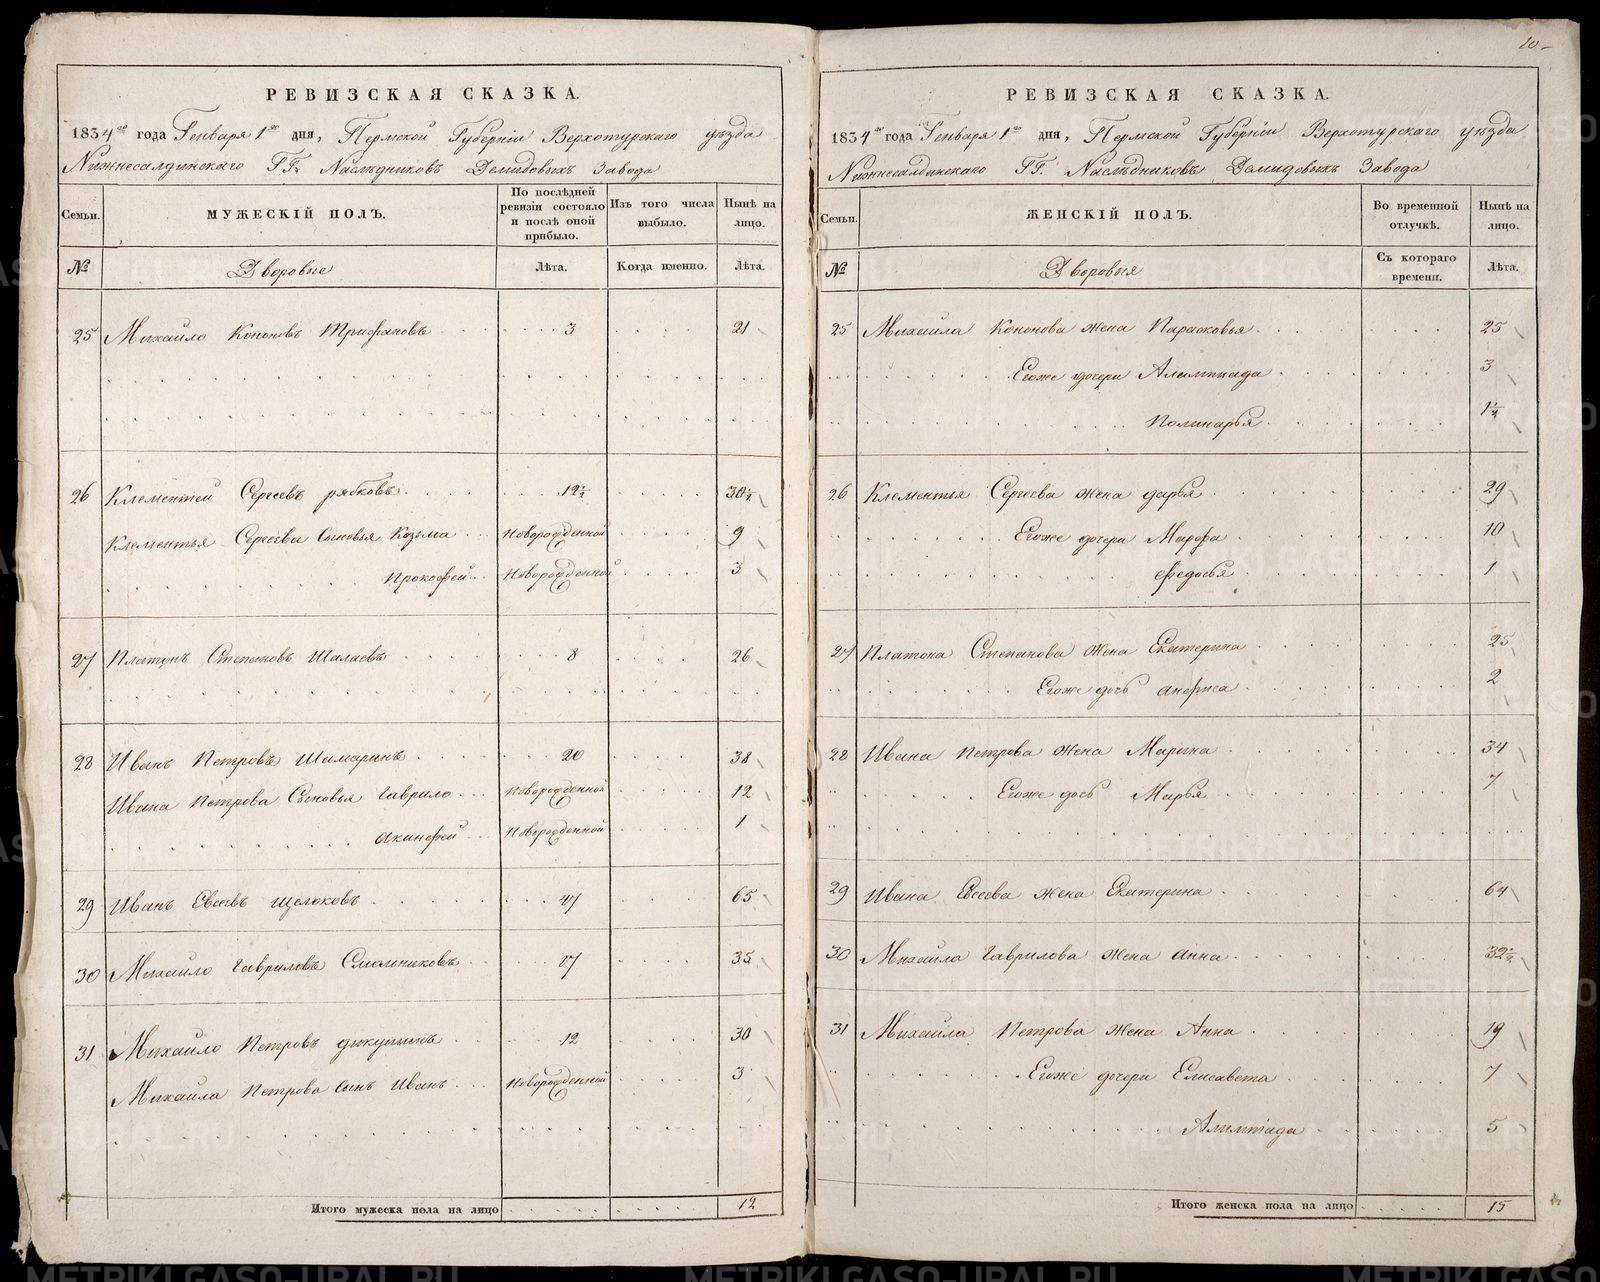 10
РЕВИЗСКАЯ СКАЗКА.
1834го года Генваря 1го дня, Пермской Губерніи Верхотурскаго уѣзда
Нижнесалдинскаго ГГ. Наслѣдниковъ Демидовыхъ Завода
Семьи. МУЖЕСКІЙ ПОЛЪ. По послѣдней ревизіи состояло и послѣ оной прибыло. Изъ того числа выбыло. Нынѣ на лицо.
№ Дворовые Лѣта. Когда именно. Лѣта.
25 Михайло Кононовъ Трифановъ 3 21
26 Клементей Сергеевъ рябковъ 12½ 30½
Клементья Сергеева Сыновья Козьма Новорожденной 9
Прокофей Новорожденной 3
27 Платонъ Степановъ Шалаевъ 8 26
28 Иванъ Петровъ Шамаринъ 20 38
Ивана Петрова Сыновья Гаврило Новорожденной 12
Акинфей Новорожденной 1
29 Иванъ Евсеевъ Щелоковъ 47 65
30 Михайло Гавриловъ Смольниковъ 17 35
31 Михайло Петровъ дикушинъ 12 30
Михайла Петрова сынъ Иванъ Новорожденной 3
Итого мужеска пола на лицо 12
РЕВИЗСКАЯ СКАЗКА.
1834го года Генваря 1го дня, Пермской Губерніи Верхотурскаго уѣзда
Нижнесалдинскаго ГГ. Наслѣдниковъ Демидовыхъ Завода
Семьи. ЖЕНСКІЙ ПОЛЪ. Во временной отлучкѣ. Нынѣ на лицо.
№ Дворовыя Съ котораго времени. Лѣта.
25 Михайла Кононова жена Парасковья 25
Егоже дочери Алимпиада 3
Полинарья 1½
26 Клементья Сергеева жена дарья 29
Егоже дочери Марфа 10
Федосья 1
27 Платона Степанова жена Екатерина 25
Егоже дочь анфиса 2
28 Ивана Петрова жена Марина 34
Егоже дочь Марья 7
29 Ивана Евсеева жена Екатерина 64
30 Михайла Гаврилова жена анна 32½
31 Михайла Петрова жена Анна 19
Егоже дочери Елисавета 7
Алимпіада 5
Итого женска пола на лицо 15
METRIKI.GASO-URAL.RU